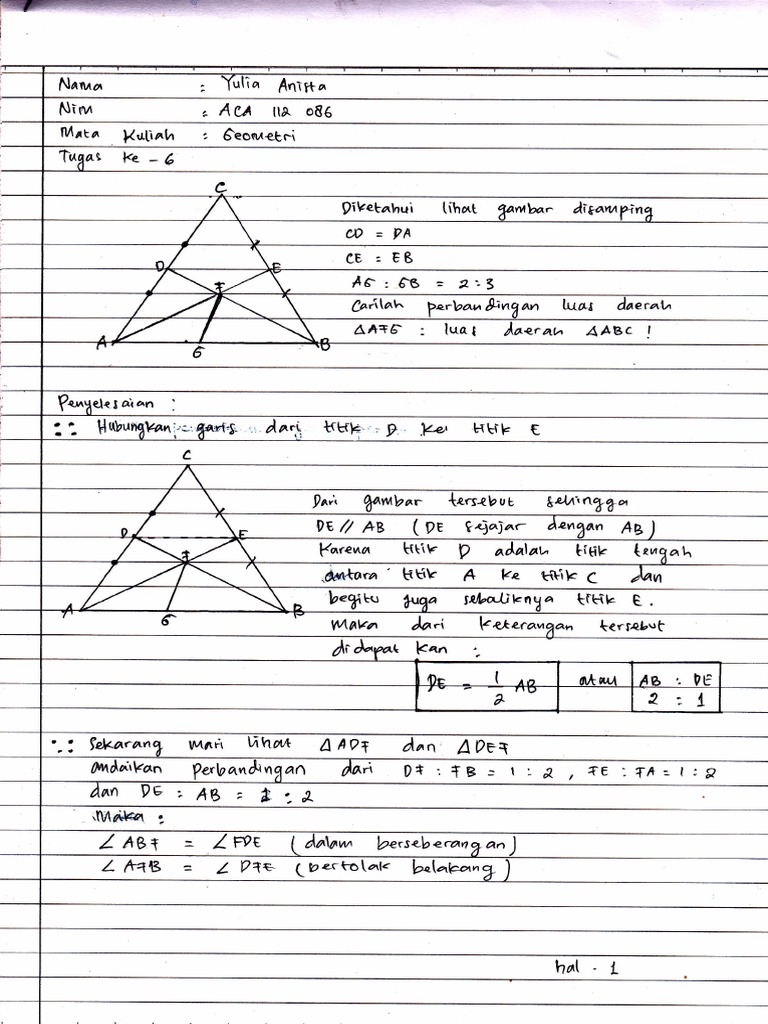 Nama : Yulia Anista
Nim : ACA 112 086
Mata Kuliah : Geometri
Tugas ke - 6
C
D
E
F
A
G
B
Diketahui lihat gambar disamping
CD = DA
CE = EB
AG : GB = 2:3
Carilah perbandingan luas daerah
△AFG : luas daerah △ABC !
Penyelesaian :
∴: Hubungkan garis dari titik D ke titik E
C
D
E
F
A
G
B
Dari gambar tersebut sehingga
DE // AB (DE sejajar dengan AB)
Karena titik D adalah titik tengah
antara titik A ke titik C dan
begitu juga sebaliknya titik E.
Maka dari keterangan tersebut
didapat kan :
DE = 1/2 AB atau AB : DE
2 : 1
∴: Sekarang mari lihat △ADF dan △DEF
andaikan perbandingan dari DF : FB = 1 : 2 , FE : FA = 1 : 2
dan DE : AB = 1 : 2
Maka :
∠ ABF = ∠ FDE (dalam berseberangan)
∠ AFB = ∠ DFE (bertolak belakang)
hal - 1